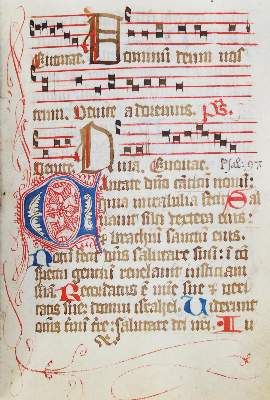 Euouae. Dominum deum nos
trum. Venite adoremus. ps.
Venite. Euouae. Psal: 97.
Cantate dño cãticũ nouũ:
quia mirabilia fecit. Sal
uauit sibi dextera eius:
et brachiũ sanctũ eius.
Notũ fecit dñs salutare suũ: ĩ cõ
spectu gentiũ reuelauit iusticiam
suã. Recordatus ẽ mĩe sue et veri
tatis sue: domui israhel. Uiderunt
oms̃ fines tr̃e: salutare dei nr̃i. Iu